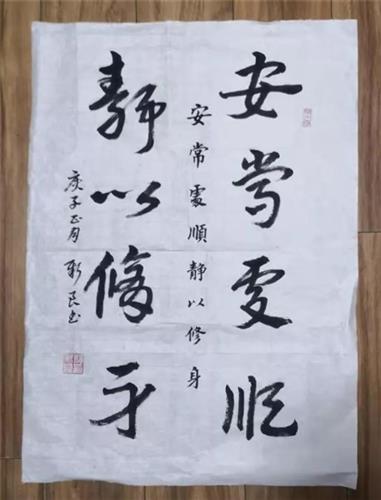 安常處順
靜以修身
安常處順靜以修身
庚子正月新民書